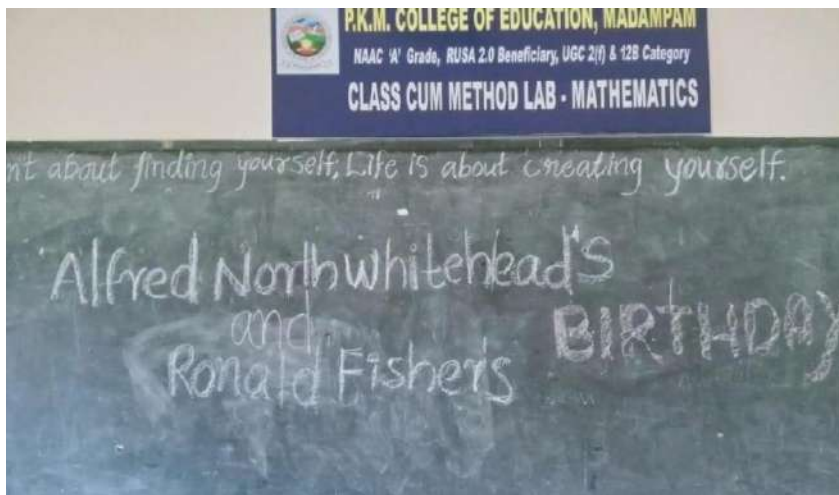 P.K.M. COLLEGE OF EDUCATION, MADAMPAM
NAAC 'A' Grade, RUSA 2.0 Beneficiary, UGC 2(f) & 12B Category
CLASS CUM METHOD LAB - MATHEMATICS
n't about finding yourself; Life is about creating yourself.
Alfred North Whitehead's
and
Ronald Fisher's
BIRTHDAY